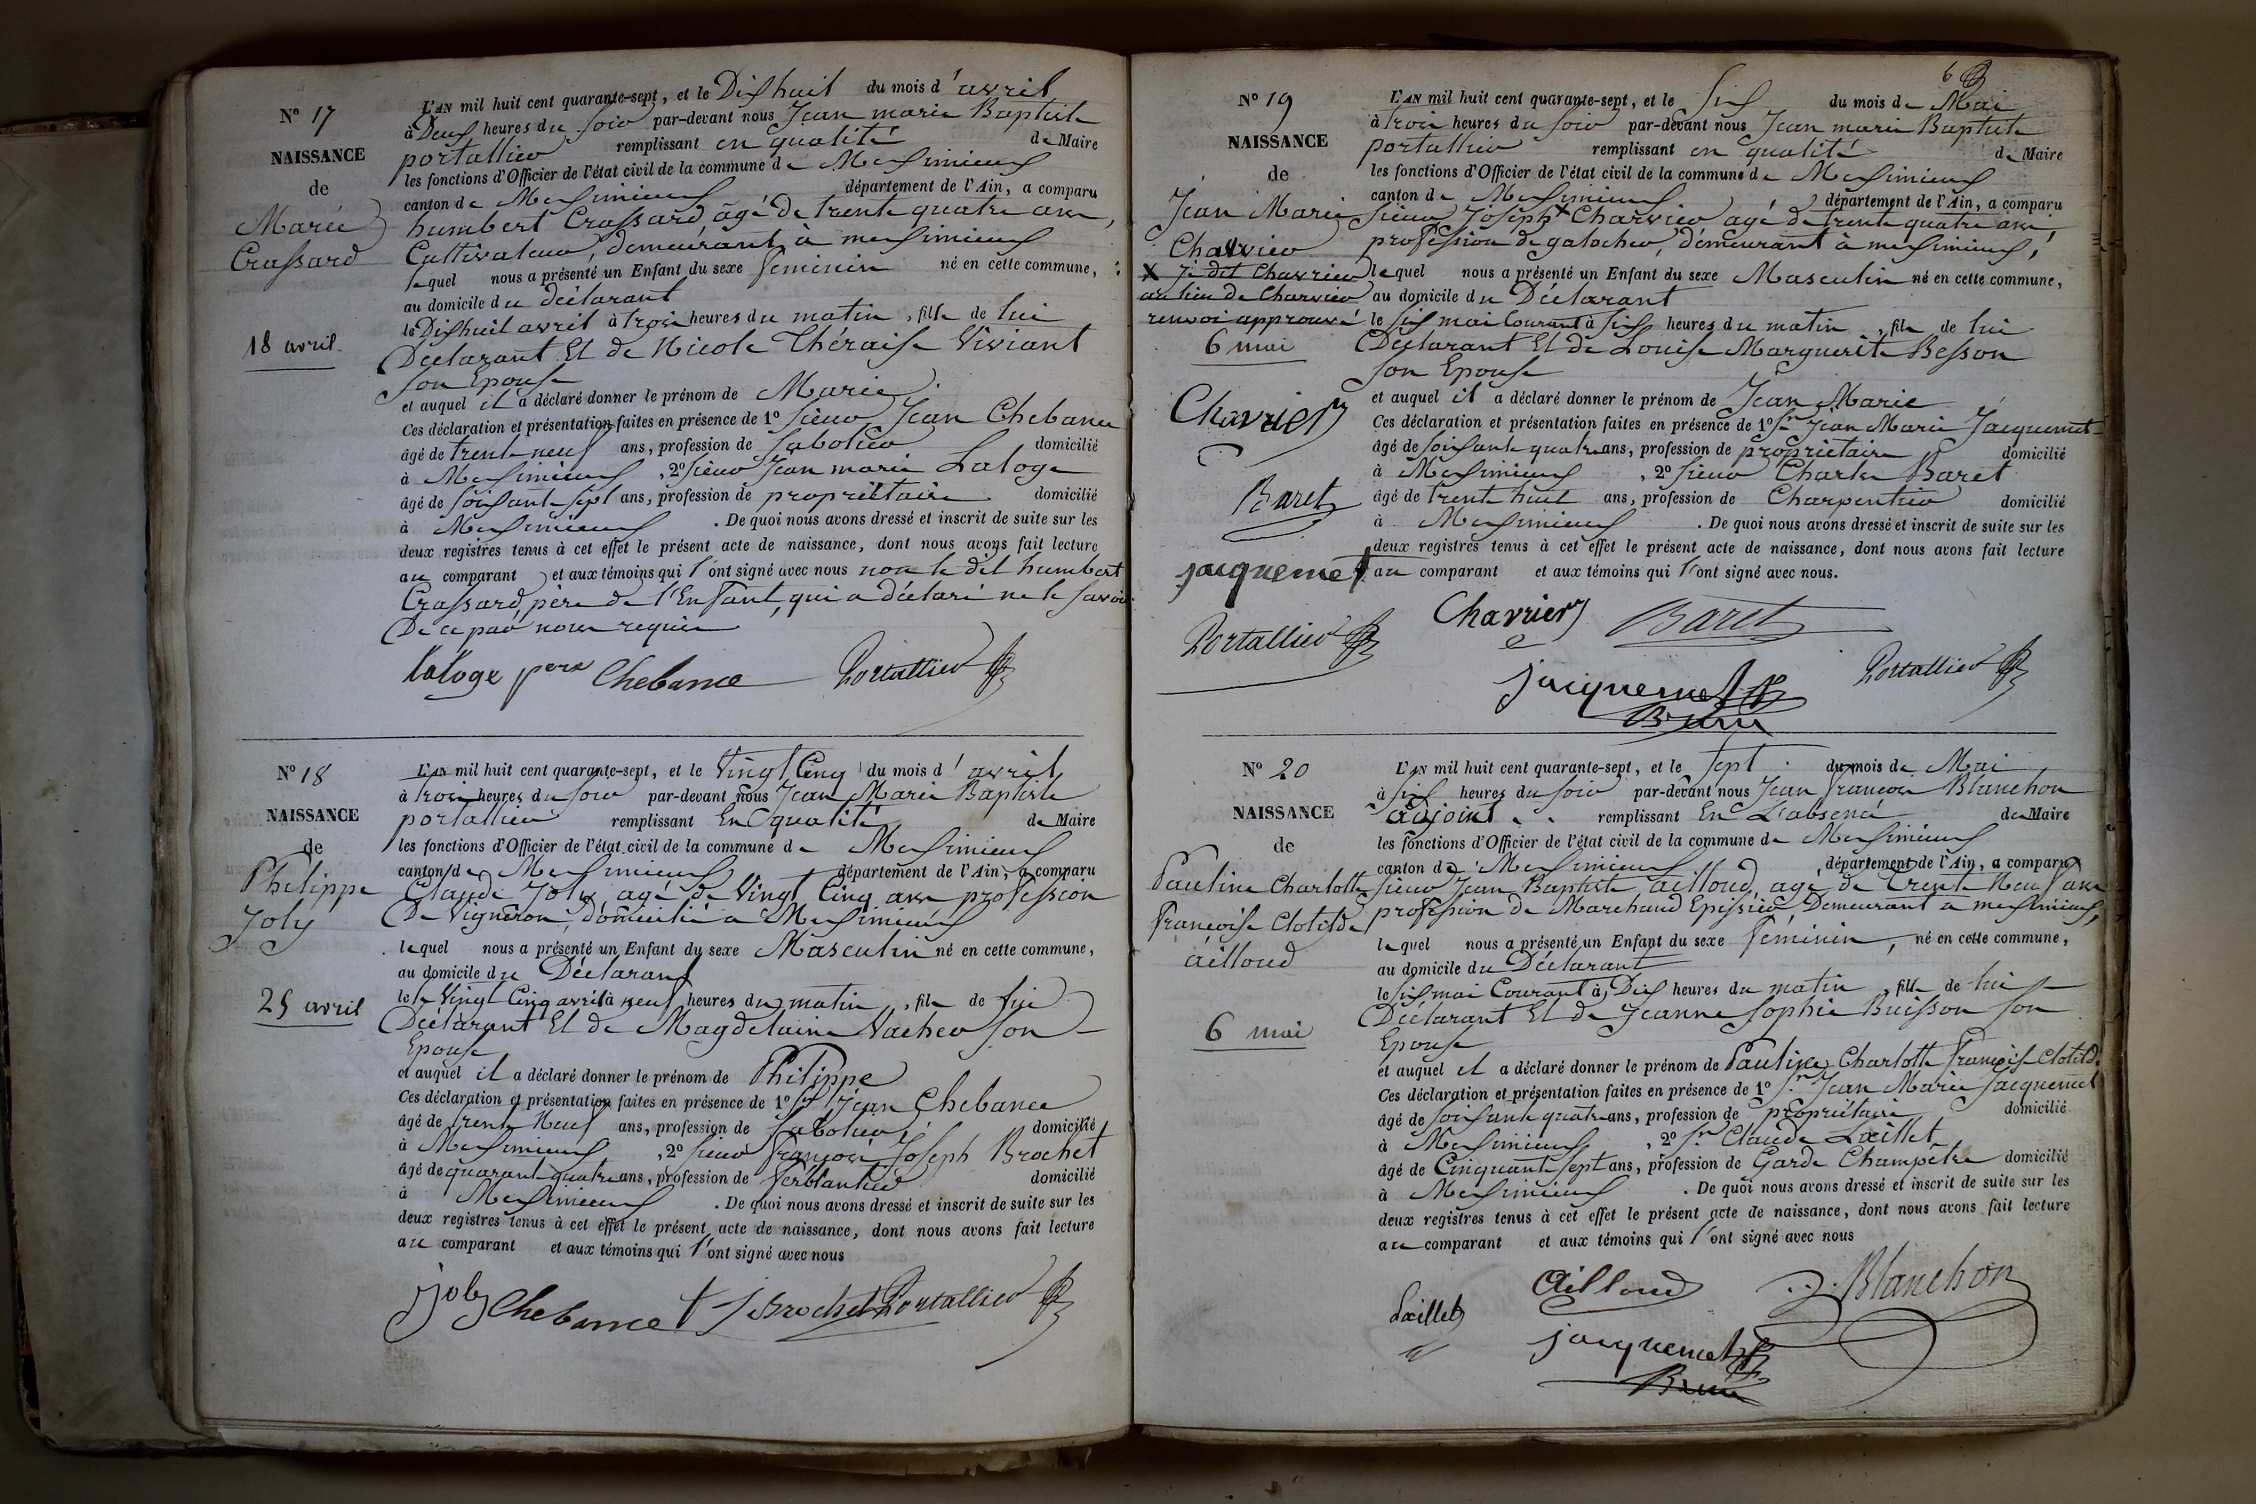 N° 17
NAISSANCE
de
Marie
Crassard
18 avril
L'AN mil huit cent quarante-sept, et le Dix huit du mois d'avril
à Deux heures du soir par-devant nous Jean marie Baptiste
portallier remplissant en qualité de Maire
les fonctions d'Officier de l'état civil de la commune de Meximieux
canton de Meximieux département de l'Ain, a comparu
humbert Crassard, âgé de trente quatre ans,
Cultivateur, demeurant à meximieux
lequel nous a présenté un Enfant du sexe feminin né en cette commune,
au domicile du déclarant
le Dixhuit avril à trois heures du matin, fille de lui
Déclarant Et de Nicole Théraise Viviant
son Epouse
et auquel il a déclaré donner le prénom de Marie
Ces déclaration et présentation faites en présence de 1° sieur Jean Chebance
âgé de trente neuf ans, profession de sabotier domicilié
à Meximieux, 2° sieur Jean marie Laloge
âgé de soixante sept ans, profession de propriétaire domicilié
à Meximieux. De quoi nous avons dressé et inscrit de suite sur les
deux registres tenus à cet effet le présent acte de naissance, dont nous avons fait lecture
au comparant et aux témoins qui l'ont signé avec nous non le dit humbert
Crassard, père de l'Enfant, qui a déclaré ne le savoir
De ce par nous requis
laloge père Chebance Portallier
N° 18
NAISSANCE
de
Philippe
Joly
25 avril
L'AN mil huit cent quarante-sept, et le Vingt Cinq du mois d'avril
à trois heures du soir par-devant nous Jean Marie Baptiste
portallier remplissant En qualité de Maire
les fonctions d'Officier de l'état civil de la commune de Meximieux
canton de Meximieux département de l'Ain, a comparu
Claude Joly agé de Vingt Cinq ans profession
De Vigneron, domicilié a Meximieux
lequel nous a présenté un Enfant du sexe Masculin né en cette commune,
au domicile du Déclarant
le Vingt Cinq avril à neuf heures du matin, fils de lui
Déclarant Et de Magdelaine Vacher son
Epouse
et auquel il a déclaré donner le prénom de Philippe
Ces déclaration et présentation faites en présence de 1° Sr Jean Chebance
âgé de trente Neuf ans, profession de sabotier domicilié
à Meximieux, 2° sieur françois Joseph Brochet
âgé de quarante quatre ans, profession de ferblantier domicilié
à Meximieux. De quoi nous avons dressé et inscrit de suite sur les
deux registres tenus à cet effet le présent acte de naissance, dont nous avons fait lecture
au comparant et aux témoins qui l'ont signé avec nous
joly Chebance Brochet Portallier
6
N° 19
NAISSANCE
de
Jean Marie
Charvier
X Je dit Chavrier
au lieu de Charvier
renvoi approuvé
6 mai
Chavrier
Baret
jacquemet
Portallier
L'AN mil huit cent quarante-sept, et le six du mois de Mai
à trois heures du soir par-devant nous Jean marie Baptiste
portallier remplissant en qualité de Maire
les fonctions d'Officier de l'état civil de la commune de Meximieux
canton de Meximieux département de l'Ain, a comparu
sieur Joseph X Charvier agé de trente quatre ans,
profession de galocher, demeurant à meximieux,
lequel nous a présenté un Enfant du sexe Masculin né en cette commune,
au domicile du Déclarant
le six mai Courant à six heures du matin, fils de lui
Déclarant Et de Louise Marguerite Besson
son Epouse
et auquel il a déclaré donner le prénom de Jean Marie
Ces déclaration et présentation faites en présence de 1° Sr Jean Marie Jacquemet
âgé de soixante quatre ans, profession de propriétaire domicilié
à Meximieux, 2° sieur Charles Baret
âgé de trente huit ans, profession de Charpentier domicilié
à Meximieux. De quoi nous avons dressé et inscrit de suite sur les
deux registres tenus à cet effet le présent acte de naissance, dont nous avons fait lecture
au comparant et aux témoins qui l'ont signé avec nous.
Chavrier Baret
jacquemet Portallier
N° 20
NAISSANCE
de
Pauline Charlotte
françoise Clotilde
ailloud
6 mai
L'AN mil huit cent quarante-sept, et le sept du mois de Mai
à six heures du soir par-devant nous Jean françois Blanchon
adjoint remplissant En L'absence du Maire
les fonctions d'Officier de l'état civil de la commune de Meximieux
canton de Meximieux département de l'Ain, a comparu
sieur Jean Baptiste ailloud, agé de trente Neuf ans
profession de Marchand Epicier, Demeurant a meximieux,
lequel nous a présenté un Enfant du sexe féminin, né en cette commune,
au domicile du Déclarant
le six mai Courant à Dix heures du matin, fille de lui
Déclarant Et de Jeanne Sophie Buisson son
Epouse
et auquel il a déclaré donner le prénom de Pauline Charlotte françoise Clotilde
Ces déclaration et présentation faites en présence de 1° Sr Jean Marie Jacquemet
âgé de soixante quatre ans, profession de propriétaire domicilié
à Meximieux, 2° Sr Claude Laillet
âgé de Cinquante sept ans, profession de Garde Champêtre domicilié
à Meximieux. De quoi nous avons dressé et inscrit de suite sur les
deux registres tenus à cet effet le présent acte de naissance, dont nous avons fait lecture
au comparant et aux témoins qui l'ont signé avec nous
Ailloud Blanchon
Laillet
jacquemet